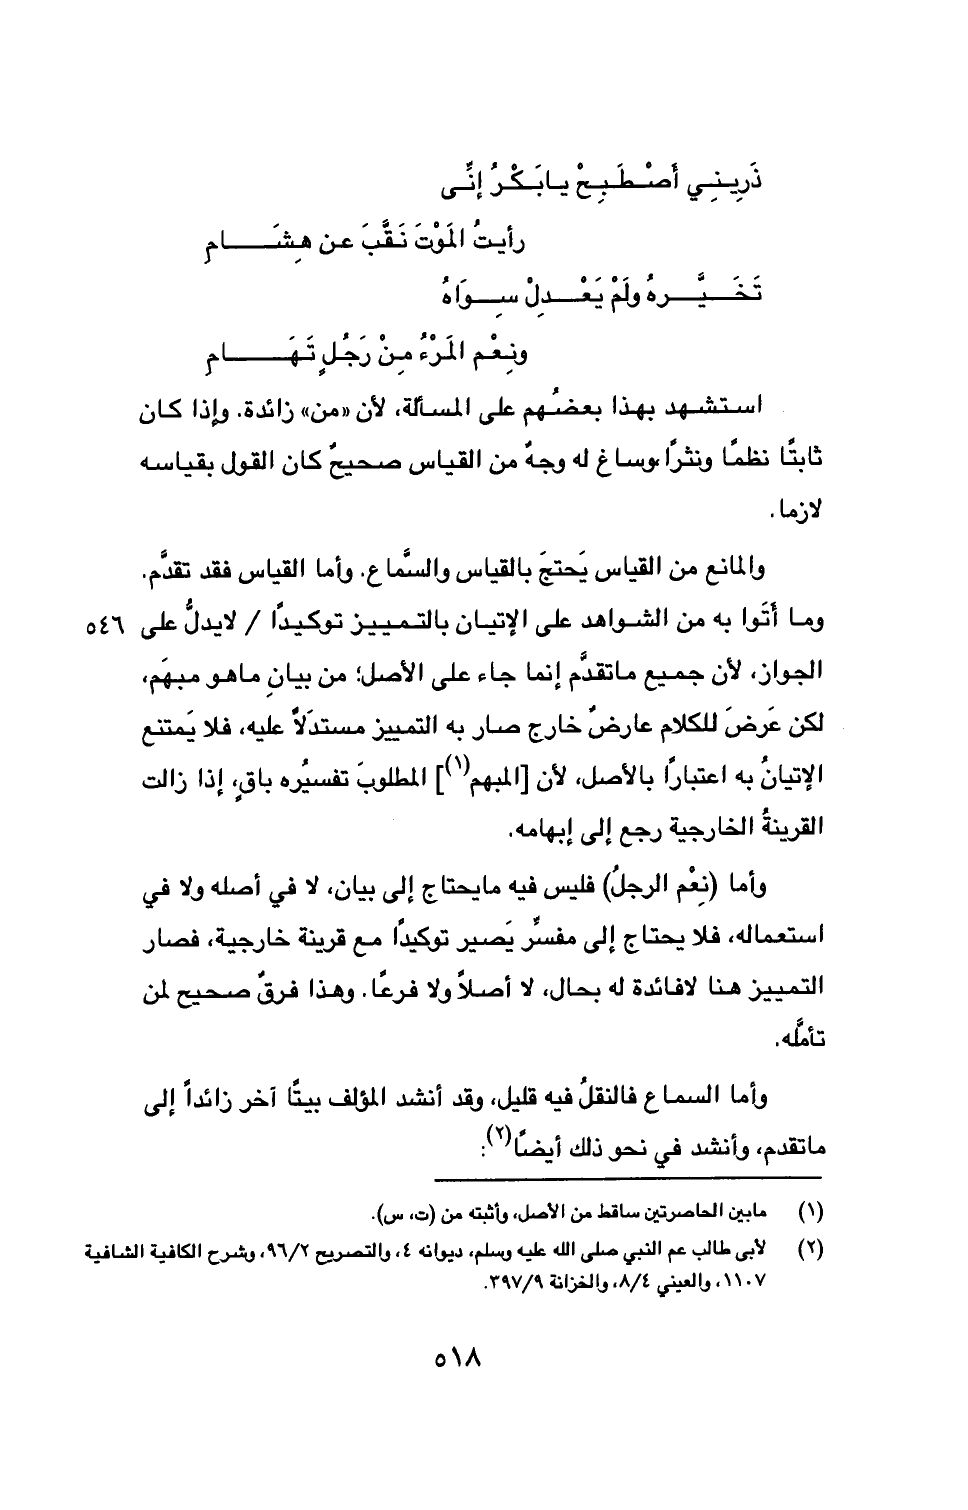 ذَرِينِي أَصْطَبِحْ يابَكْرُ إنِّى
رأيتُ المَوْتَ نَقَّبَ عن هِشَامِ
تَخَيَّرهُ ولَمْ يَعْدِلْ سِوَاهُ
ونِعْم المَرْءُ مِنْ رَجُلٍ تَهَامِ
استشهد بهذا بعضُهم على المسألة، لأن «من» زائدة. وإذا كان
ثابتًا نظمًا ونثرًا وساغ له وجهٌ من القياس صحيحٌ كان القول بقياسه
لازما.
والمانع من القياس يَحتجَ بالقياس والسَّماع. وأما القياس فقد تقدَّم.
وما أَتَوا به من الشواهد على الإتيان بالتمييز توكيدًا / لايدلُّ على ٥٤٦
الجواز، لأن جميع ماتقدَّم إنما جاء على الأصل؛ من بيانِ ماهو مبهَم،
لكن عَرضَ للكلام عارضٌ خارج صار به التمييز مستدَلاً عليه، فلا يَمتنع
الإتيانُ به اعتبارًا بالأصل، لأن [المبهم(١)] المطلوبَ تفسيُره باقٍ، إذا زالت
القرينةُ الخارجية رجع إلى إبهامه.
وأما (نِعْم الرجلُ) فليس فيه مايحتاج إلى بيان، لا في أصله ولا في
استعماله، فلا يحتاج إلى مفسِّر يَصير توكيدًا مع قرينة خارجية، فصار
التمييز هنا لافائدة له بحال، لا أصلاً ولا فرعًا. وهذا فرقٌ صحيح لمن
تأملَّه.
وأما السماع فالنقلُ فيه قليل، وقد أنشد المؤلف بيتًا آخر زائداً إلى
ماتقدم، وأنشد في نحو ذلك أيضًا(٢):
(١) مابين الحاصرتين ساقط من الأصل، وأثبته من (ت، س).
(٢) لأبى طالب عم النبي صلى الله عليه وسلم، ديوانه ٤، والتصريح ٩٦/٢، وشرح الكافية الشافية
١١٠٧، والعيني ٨/٤، والخزانة ٣٩٧/٩.
٥١٨